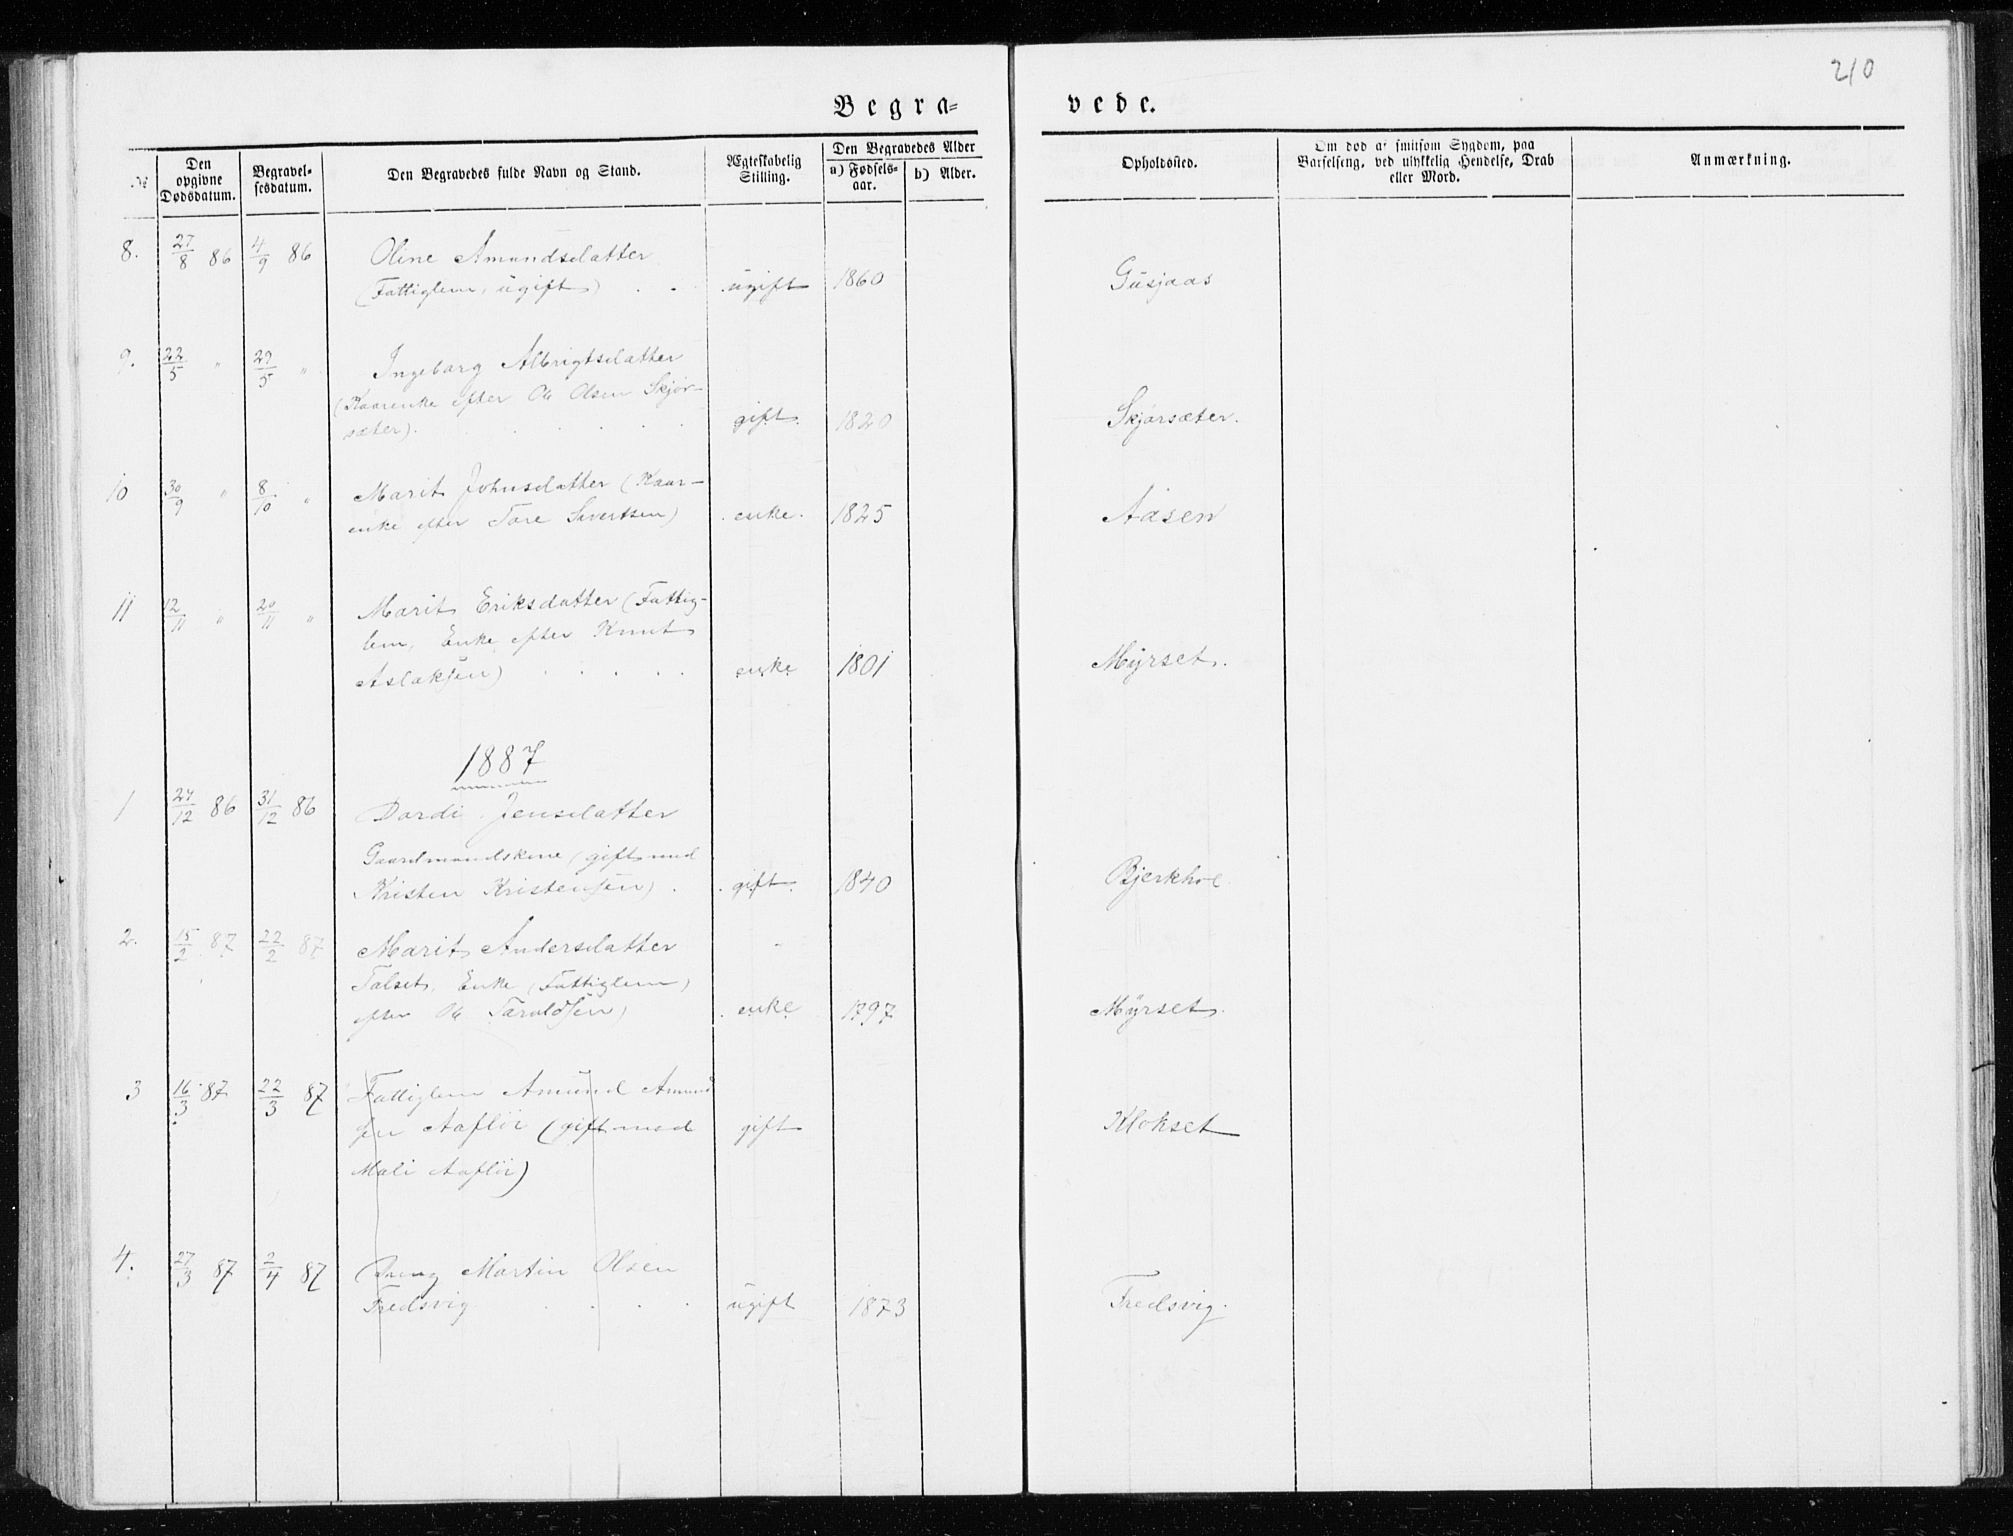 210
Begra= vede.
№
Den opgivne Dødsdatum.
Begravel-sesdatum.
Den Begravedes fulde Navn og Stand.
Ægteskabelig Stilling.
Den Begravedes Alder
a) Fødsels-aar.
b) Alder.
Opholdssted.
Om død af smitsom Sygdom, paa
Barselseng, ved ulykkelig Hendelse, Drab
eller Mord.
Anmærkning.
8. 27/8 86 4/9 86 Oline Amundsdatter
(Fattiglem, ugift) . . ugift 1860 Gusjaas
9. 22/5 " 29/5 " Ingeborg Albrigtsdatter
(Kaarenke efter Ole Olsen Skjør-
sæter). . . . . . gift. 1820 Skjørsæter.
10 30/9 " 8/10 " Marit Johnsdatter (Kaar-
enke efter Tore Sivertsen) enke. 1825 Aasen
11 12/11 " 20/11 " Marit Eriksdatter (Fattig-
lem, Enke efter Knut
Aslaksen) . . . . . enke 1801 Myrset.
1887
1 24/12 86 31/12 86 Dordi Jensdatter
Gaardmandskone (gift med
Kristen Kristensen) . gift. 1840 Bjerkhoe
2. 15/2 87 22/2 87 Marit Andersdatter
Talset, Enke (Fattiglem)
efter Ole Taraldsen) enke 1797 Myrset.
3 16/3 87 22/3 87 Fattiglem Amund Amund
sen Aaflöi (gift med gift Klokset
Mali Aaflöi)
4. 27/3 87 2/4 87 Dreng Martin Olsen
Fredsvig . . . . ugift 1873 Fredsvig.